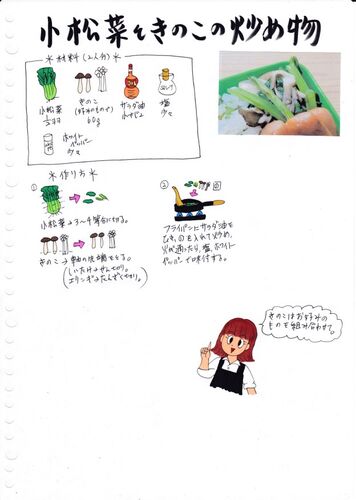 小松菜ときのこの炒め物
＊材料(2人分)＊
小松菜
きのこ
(好みのもので)
60g
サラダ油
小さじ2
塩
少々
ホワイト
ペッパー
少々
＊作り方＊
①
小松菜→3〜4等分に切る。
きのこ→軸の先端をとる。
(しいたけ→せん切り。
エリンギ→たんざく切り。)
②
フライパンにサラダ油を
ひき、①を入れて炒め、
火が通ったら、塩、ホワイト
ペッパーで味付する。
きのこはお好みの
ものを組み合わせて。